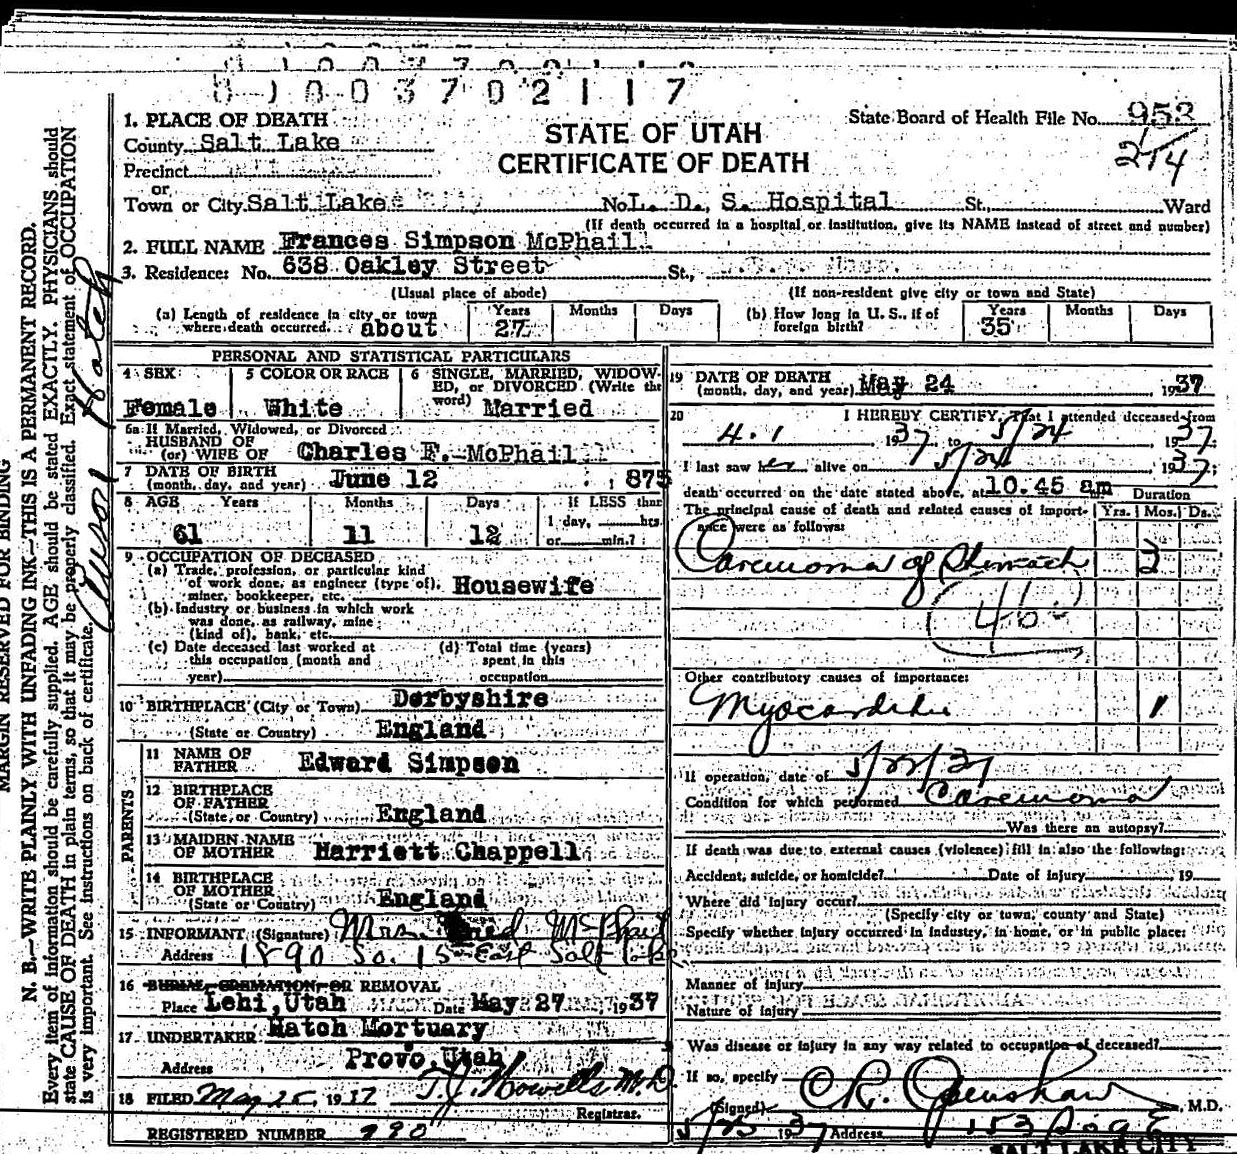 8 1 0 0 3 7 0 2 1 1 7
State Board of Health File No. 953
214
STATE OF UTAH
CERTIFICATE OF DEATH
1. PLACE OF DEATH
County Salt Lake
Precinct
or
Town or City Salt Lake No. L. D. S. Hospital St. Ward
(If death occurred in a hospital or institution, give its NAME instead of street and number)
2. FULL NAME Frances Simpson McPhail
3. Residence: No. 638 Oakley Street St.,
(Usual place of abode) (If non-resident give city or town and State)
(a) Length of residence in city or town where death occurred. about Years 27 Months Days
(b) How long in U. S., if of foreign birth? Years 35 Months Days
PERSONAL AND STATISTICAL PARTICULARS
4 SEX Female
5 COLOR OR RACE White
6 SINGLE, MARRIED, WIDOWED, or DIVORCED (Write the word) Married
6a If Married, Widowed, or Divorced
HUSBAND OF
(or) WIFE OF Charles F. McPhail
7 DATE OF BIRTH
(month, day, and year) June 12 875
8 AGE Years 61 Months 11 Days 12
If LESS than
1 day, hrs.
or min.?
9 OCCUPATION OF DECEASED
(a) Trade, profession, or particular kind
of work done, as engineer (type of),
miner, bookkeeper, etc. Housewife
(b) Industry or business in which work
was done, as railway, mine
(kind of), bank, etc.
(c) Date deceased last worked at
this occupation (month and
year)
(d) Total time (years)
spent in this
occupation
10 BIRTHPLACE (City or Town) Derbyshire
(State or Country) England
PARENTS
11 NAME OF
FATHER Edward Simpson
12 BIRTHPLACE
OF FATHER
(State or Country) England
13 MAIDEN NAME
OF MOTHER Harriett Chappell
14 BIRTHPLACE
OF MOTHER
(State or Country) England
15 INFORMANT (Signature) Mrs. Fred McPhail
Address 1890 So. 15 East Salt Lake
16 BURIAL, CREMATION, OR REMOVAL
Place Lehi, Utah Date May 27 1937
17 UNDERTAKER Hatch Mortuary
Address Provo, Utah
18 FILED May 25, 1937 T. J. Howells M.D.
Registrar.
REGISTERED NUMBER 990
19 DATE OF DEATH
(month, day, and year) May 24 1937
20 I HEREBY CERTIFY, That I attended deceased from
4.1, 1937, to 5/24, 1937;
I last saw her alive on 5/24, 1937;
death occurred on the date stated above, at 10.45 am
Duration
The principal cause of death and related causes of importance were as follows: Yrs. Mos. Ds.
Carcinoma of Stomach 3
46
Other contributory causes of importance:
Myocarditis 1
If operation, date of 5/22/37
Condition for which performed Carcinoma
Was there an autopsy?
If death was due to external causes (violence) fill in also the following:
Accident, suicide, or homicide? Date of injury 19
Where did injury occur?
(Specify city or town, county and State)
Specify whether injury occurred in industry, in home, or in public place:
Manner of injury
Nature of injury
Was disease or injury in any way related to occupation of deceased?
If so, specify
(Signed) C R. Openshaw, M.D.
5/25 1937 Address 153
SALT LAKE CITY
MARGIN RESERVED FOR BINDING
N. B.—WRITE PLAINLY WITH UNFADING INK—THIS IS A PERMANENT RECORD.
Every item of information should be carefully supplied. AGE should be stated EXACTLY. PHYSICIANS should
state CAUSE OF DEATH in plain terms, so that it may be properly classified. Exact statement of OCCUPATION
is very important. See instructions on back of certificate.
Hatch